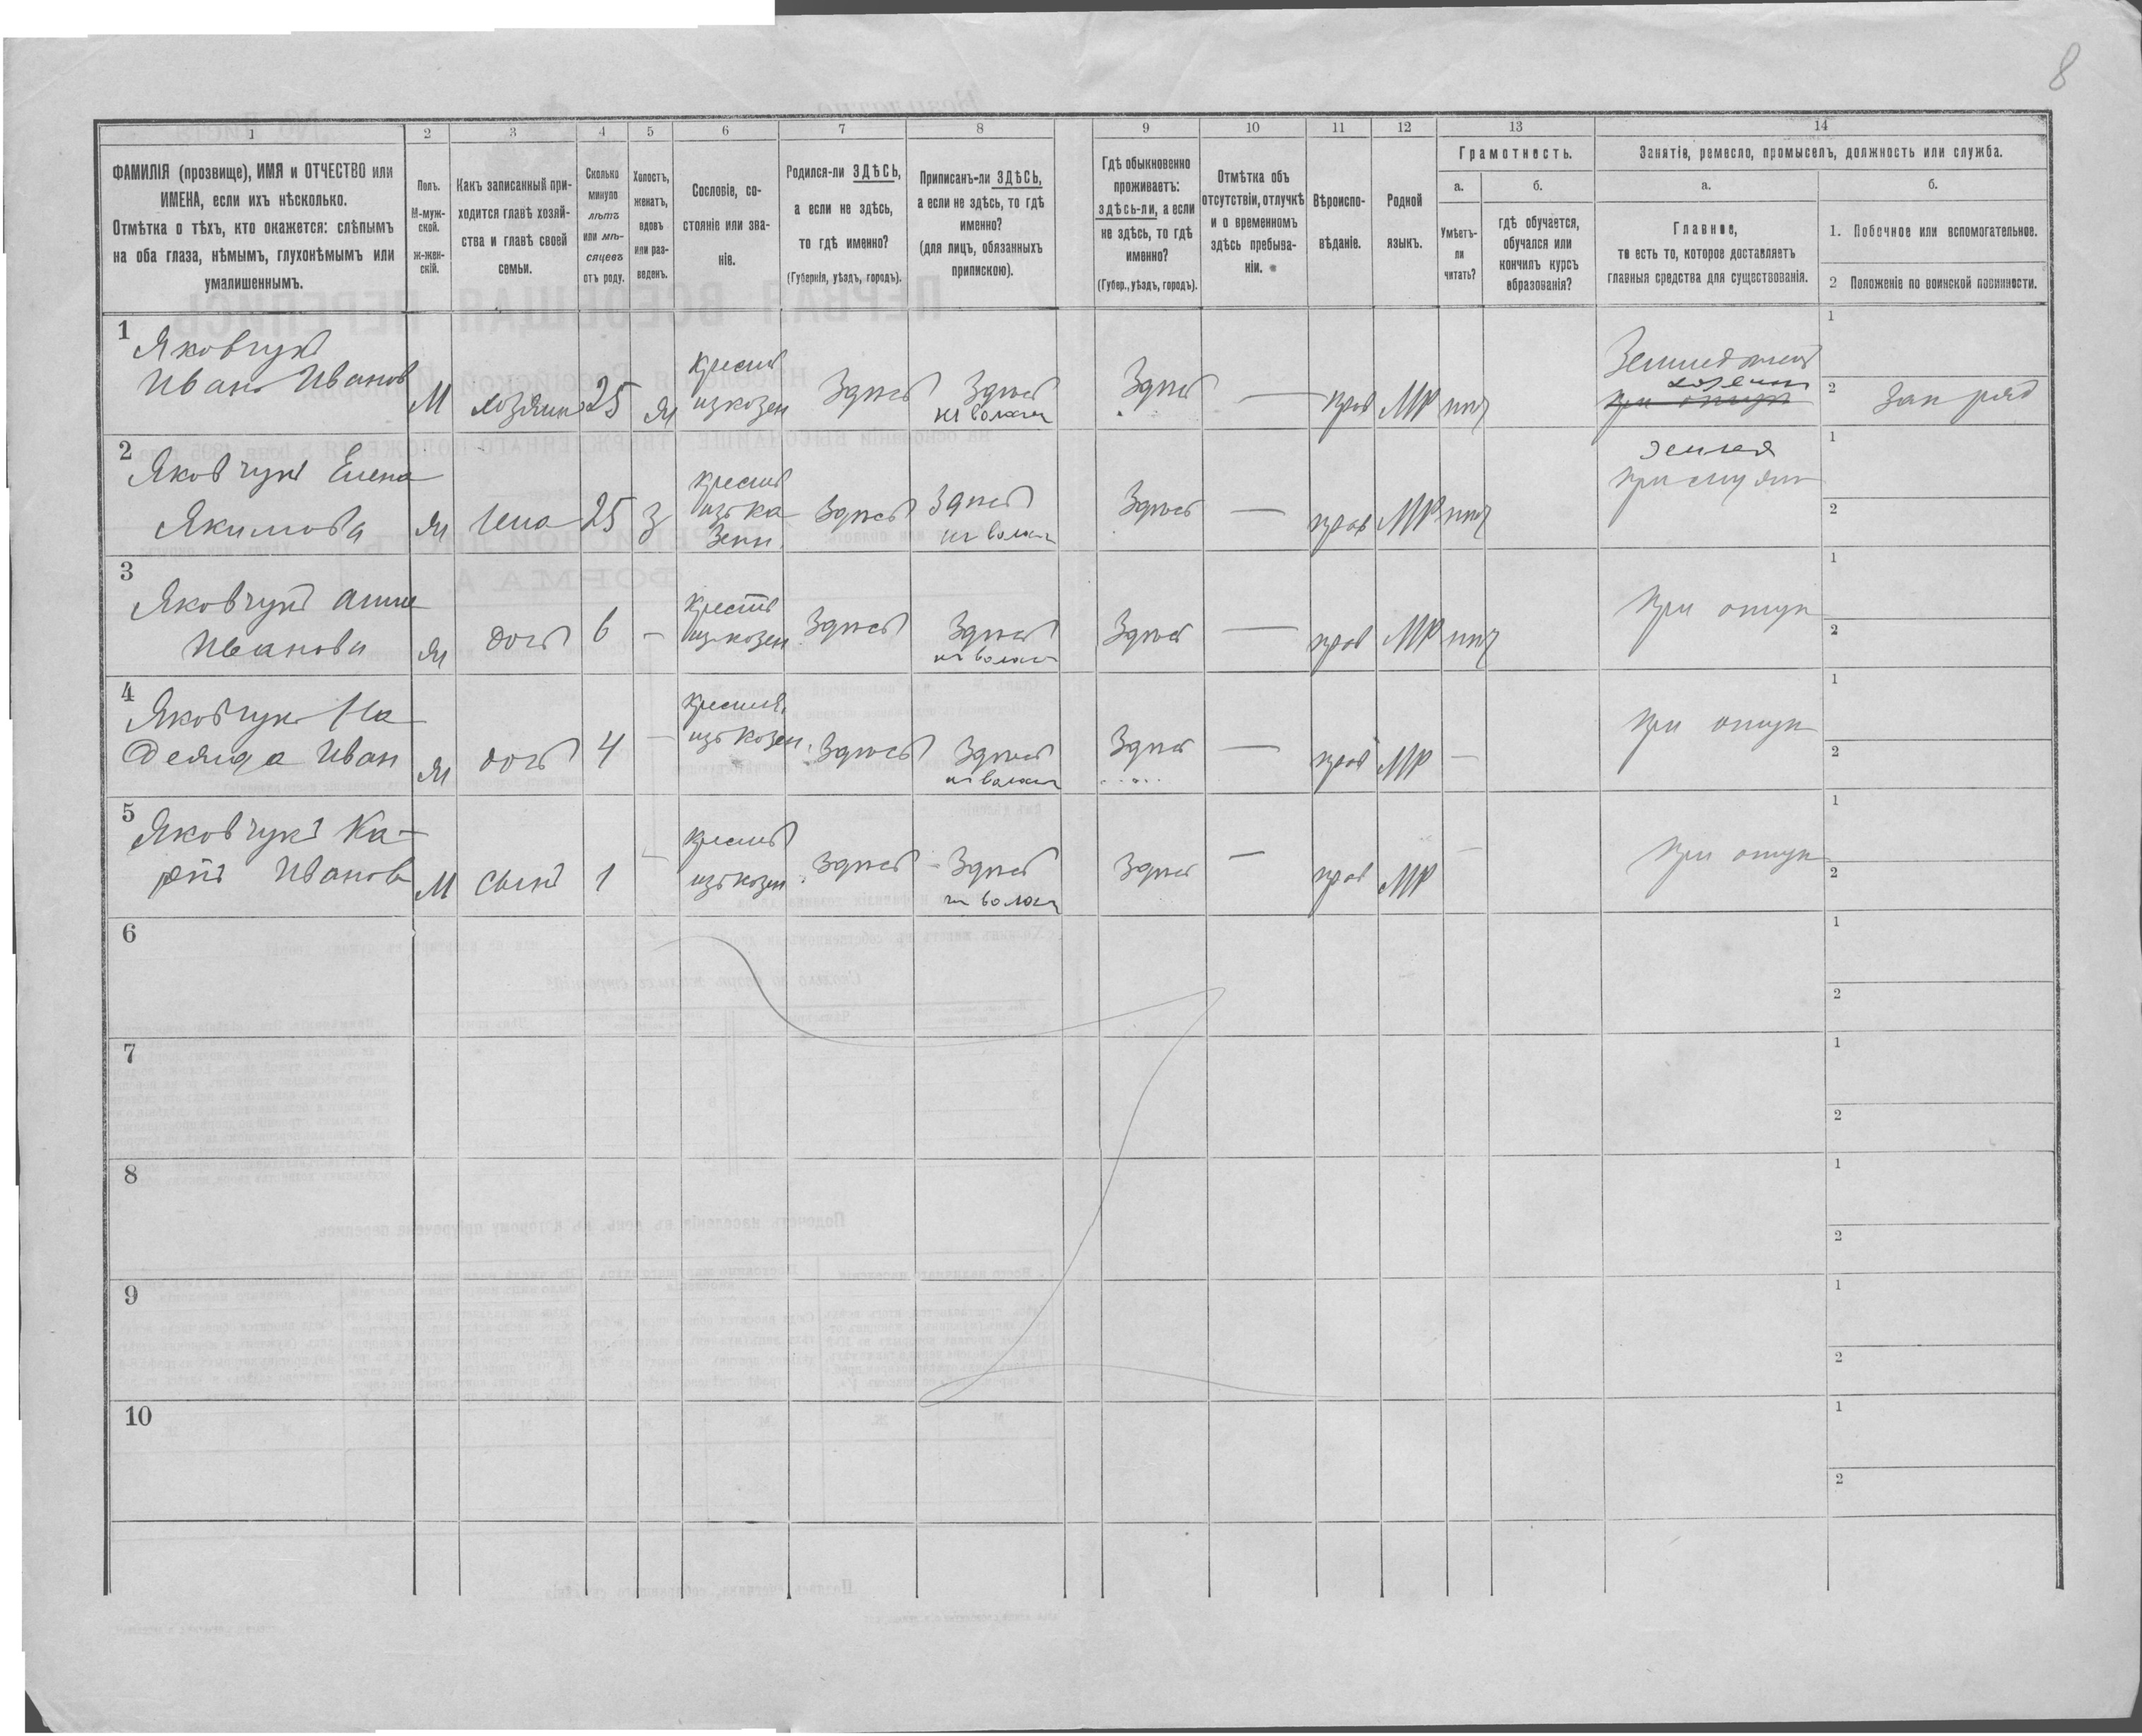 8
1
2
3
4
5
6
7
8
9
10
11
12
13
14
ФАМИЛІЯ (прозвище), ИМЯ и ОТЧЕСТВО или
ИМЕНА, если ихъ нѣсколько.
Отмѣтка о тѣхъ, кто окажется: слѣпымъ
на оба глаза, нѣмымъ, глухонѣмымъ или
умалишеннымъ.
Полъ.
М-муж-
ской.
ж-жен-
скій.
Какъ записанный при-
ходится главѣ хозяй-
ства и главѣ своей
семьи.
Сколько
минуло
лѣтъ
или мѣ-
сяцевъ
отъ роду.
Холостъ,
женатъ,
вдовъ
или раз-
веденъ.
Сословіе, со-
стояніе или зва-
ніе.
Родился-ли ЗДѢСЬ,
а если не здѣсь,
то гдѣ именно?
(Губернія, уѣздъ, городъ).
Приписанъ-ли ЗДѢСЬ,
а если не здѣсь, то гдѣ
именно?
(для лицъ, обязанныхъ
припискою).
Гдѣ обыкновенно
проживаетъ:
здѣсь-ли, а если
не здѣсь, то гдѣ
именно?
(Губер., уѣздъ, городъ).
Отмѣтка объ
отсутствіи, отлучкѣ
и о временномъ
здѣсь пребыва-
ніи.
Вѣроиспо-
вѣданіе.
Родной
языкъ.
Грамотность.
а.
Умѣетъ-
ли
читать?
б.
гдѣ обучается,
обучался или
кончилъ курсъ
образованія?
Занятіе, ремесло, промыселъ, должность или служба.
а.
Главное,
то есть то, которое доставляетъ
главныя средства для существованія.
б.
1. Побочное или вспомогательное.
2 Положеніе по воинской повинности.
1
Яковчукъ
Иванъ Ивановъ
М
хозяинъ
25
Ж
крестъ
изъ казен
Здѣсь
Здѣсь
Здѣсь
—
прав
МР
нѣт
хозяинъ
1
2
Зап ряд
2
Яковчукъ Елена
Якимова
Ж
жена
25
З
крестъ
изъ ка
зен
Здѣсь
Здѣсь
Здѣсь
—
прав
МР
нѣт
земля
1
2
3
Яковчукъ Анна
Иванова
Ж
доч
6
—
крестъ
изъ казен
Здѣсь
Здѣсь
Здѣсь
—
прав
МР
нѣт
при отцѣ
1
2
4
Яковчукъ На
дежда Иван
Ж
доч
4
—
крестъ
изъ казен
Здѣсь
Здѣсь
Здѣсь
—
прав
МР
—
при отцѣ
1
2
5
Яковчукъ Ка
рпъ Иванов
М
сынъ
1
—
крестъ
изъ казен
Здѣсь
Здѣсь
Здѣсь
—
прав
МР
—
при отцѣ
1
2
6
1
2
7
1
2
8
1
2
9
1
2
10
1
2